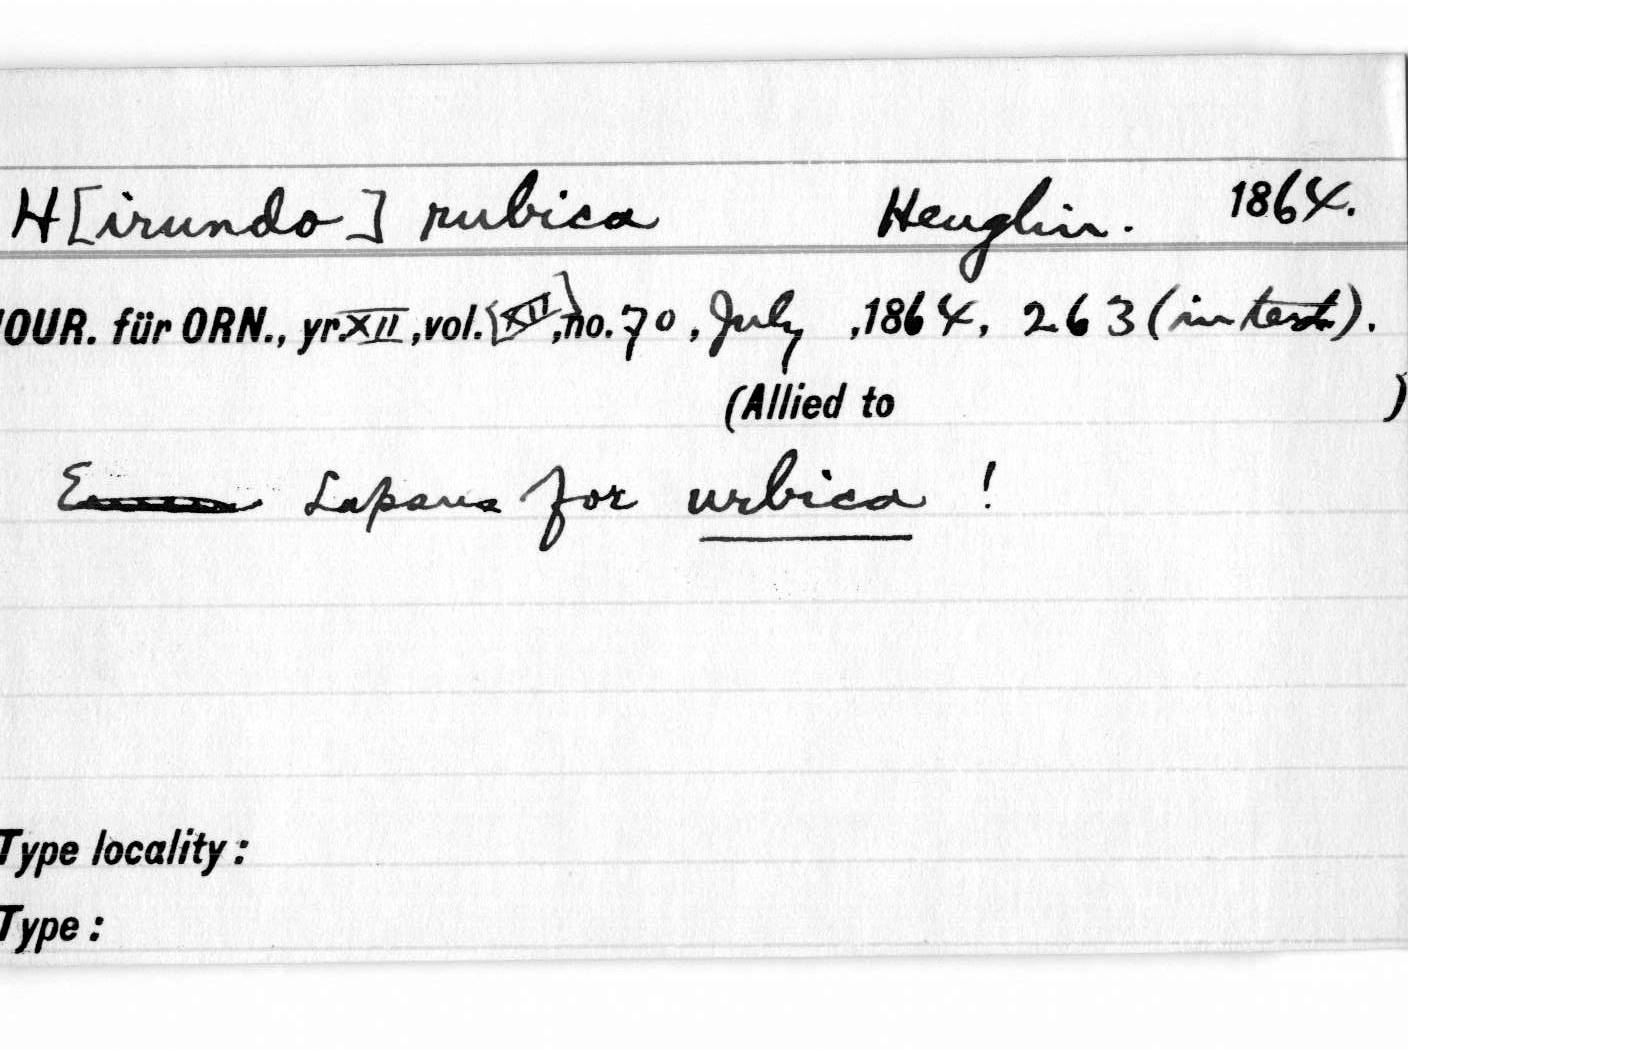 H[irundo] rubica Heuglin. 1864.
JOUR. für ORN., yr. XII, vol. [XII], no. 70, July, 1864, 263 (in text).
(Allied to )
Lapsus for urbica !
Type locality :
Type :